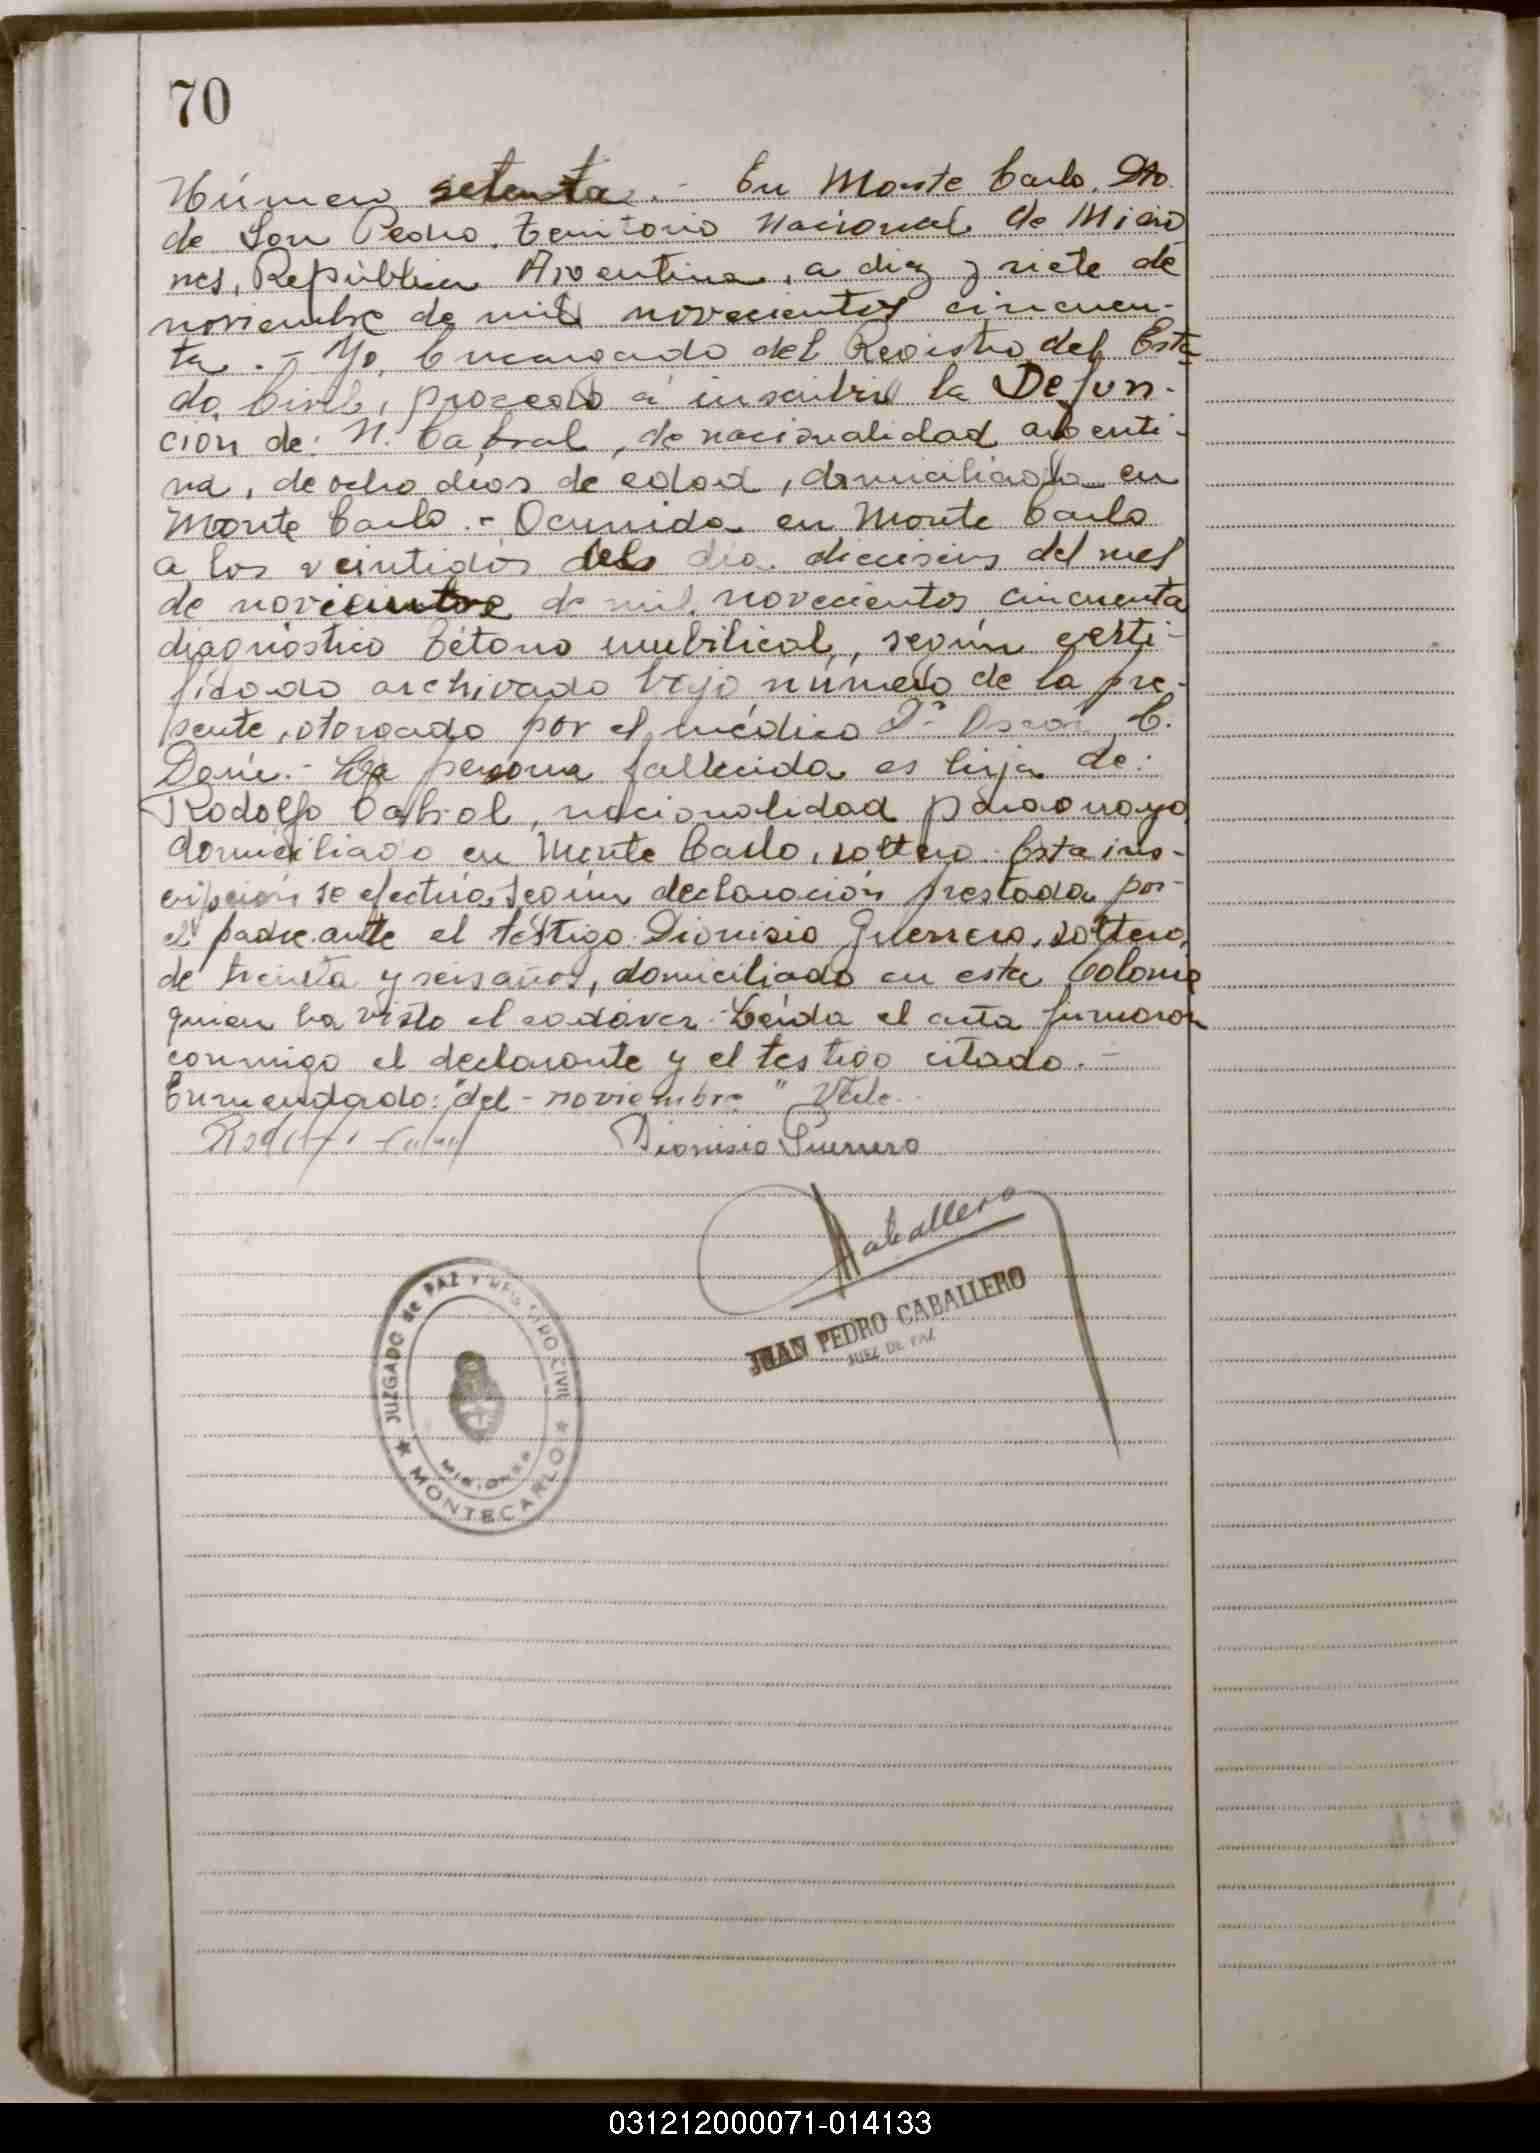 70
Número setenta.- En Monte Carlo. Dto.
de San Pedro. Territorio Nacional de Misio
nes, República Argentina, a diez y siete de
noviembre de mil novecientos cincuen-
ta.- Yo, Encargado del Registro del Esta-
do Civil, procedo á inscribir la Defun-
ción de: N. Cabral, de nacionalidad argenti-
na, de ocho días de edad, domiciliada en
Monte Carlo.- Ocurrida en Monte Carlo
a las veintidós del día dieciséis del mes
de noviembre de mil novecientos cincuenta
diagnóstico Tétano umbilical, según certi-
ficado archivado bajo número de la pre-
sente, otorgado por el médico Dr Oscar C.
La persona fallecida es hija de:
Rodolfo Cabral, nacionalidad paraguayo,
domiciliado en Monte Carlo, soltero. Esta ins-
cripción se efectúa según declaración prestada por
el padre ante el téstigo Dionisio Guerrero, soltero,
de treinta y seis años, domiciliado en esta Colonia
quien ha visto el cadáver.- Leída el acta firmaron
conmigo el declarante y el testigo citado.-
Enmendado: "del - noviembre" Vale.
Dionisio Guerrero
Caballero
JUAN PEDRO CABALLERO
JUEZ DE PAZ
JUZGADO de PAZ Y REGISTRO CIVIL
MISIONES
★ MONTECARLO ★
031212000071-014133